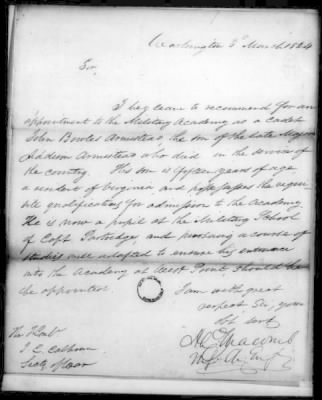 Washington 3d March 1824
Sir,
I beg leave to recommend for an
appointment to the Military Academy as a cadet
John Bowles Armistead, the son of the late Major
Addison Armistead who died in the service of
the country. His son is fifteen years of age
a resident of Virginia and possesses the requi-
site qualifications for admission to the Academy
He is now a pupil at the Military School
of Capt Partridge, and pursuing a course of
studies well adapted to ensure his entrance
into the Academy at West Point, should he
be appointed.
I am with great
respect Sir, your
obt servt
Macomb
The Honble
J. C. Calhoun
Secty of War